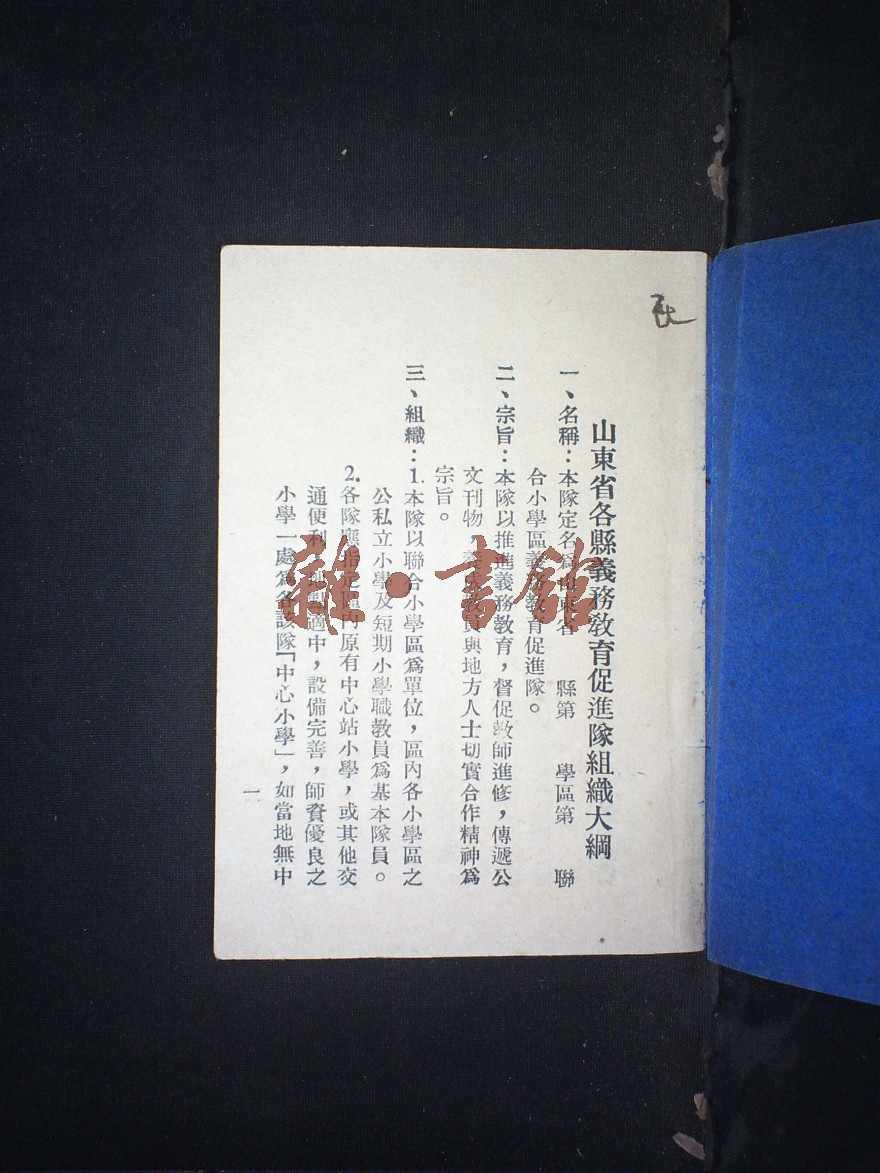 山東省各縣義務敎育促進隊組織大綱
一、名稱：本隊定名爲山東省　　縣第　　學區第　　聯
合小學區義務敎育促進隊。
二、宗旨：本隊以推進義務敎育，督促敎師進修，傳遞公
文刊物，養成敎員與地方人士切實合作精神爲
宗旨。
三、組織：1.本隊以聯合小學區爲單位，區內各小學區之
公私立小學及短期小學職敎員爲基本隊員。
2.各隊應指定區內原有中心站小學，或其他交
通便利，地點適中，設備完善，師資優良之
小學一處爲各該隊「中心小學」，如當地無中
一
雜·書館